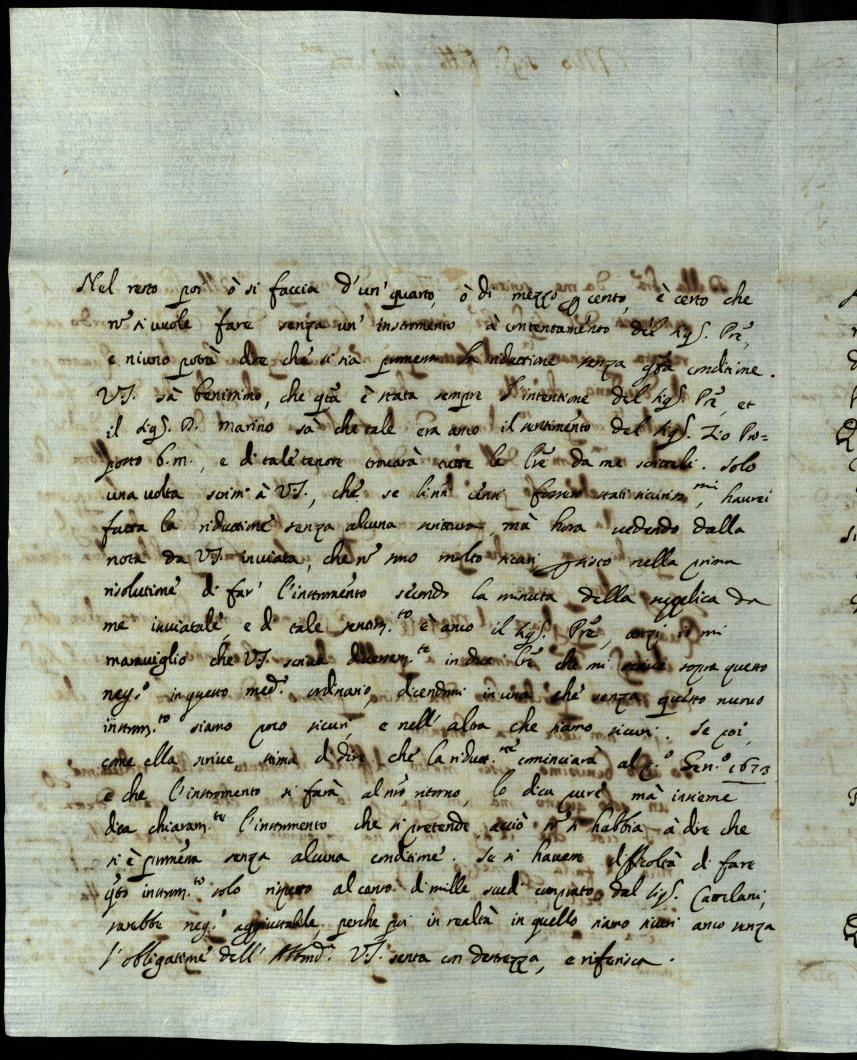 Nel resto poi ò si faccia d'un' quarto, ò di mezzo p cento, è certo che
nō si vuole fare senza un' instromento à contentamēnto del Sigr. Prē,
e niuno potrà dire che si sia promessa la riduttione senza qsta conditione.
V.S. sà benissimo, che qstā è stata sempre l'intentione del Sigr. Prē, et
il Sigr. D. Marino sà che tale era anco il sentimento del Sigr. Zio Pro=
posto b.m., e di tale tenore trovarà tutte le lrē da me scritteli. Solo
una volta scrissi à V.S., che se li nrī censi fossero stati sicurissmi, haurei
fatta la riduttione senza alcuna scrittura, mà hora vedendo dalla
nota da V.S. inviata, che nō sono molto sicuri, insisto nella prima
risolutione di far' l'instromento secondo la minuta della supplica da
me inviatale, e di tale sentim.to è anco il Sigr. Prē, anzi io mi
maraviglio che V.S. scriva diversam.te in due lrē che mi scrive sopra questo
neg.o in questo med.o ordinario, dicendomi in una che senza questo nuovo
instrom.to siamo poco sicuri, e nell' altra che siamo sicuri. Se poi,
come ella scrive, stima di dire che la ridut.ne cominciarà al p.o Gen.o 1673
e che l'instromento si farà al nrō ritorno, lo dica pure, mà insieme
dica chiaram.te l'instromento che si pretende acciò nō si habbia à dire che
si è promessa senza alcuna conditione. Se si havesse difficoltà di fare
qsto instrom.to solo rispetto al censo di mille scudi comprato dal Sigr. Castellani,
sarebbe neg.o aggiustabile, perche poi in realtà in quello siamo sicuri anco senza
l'obligatione dell' V.S. senta con destrezza, e riferisca.